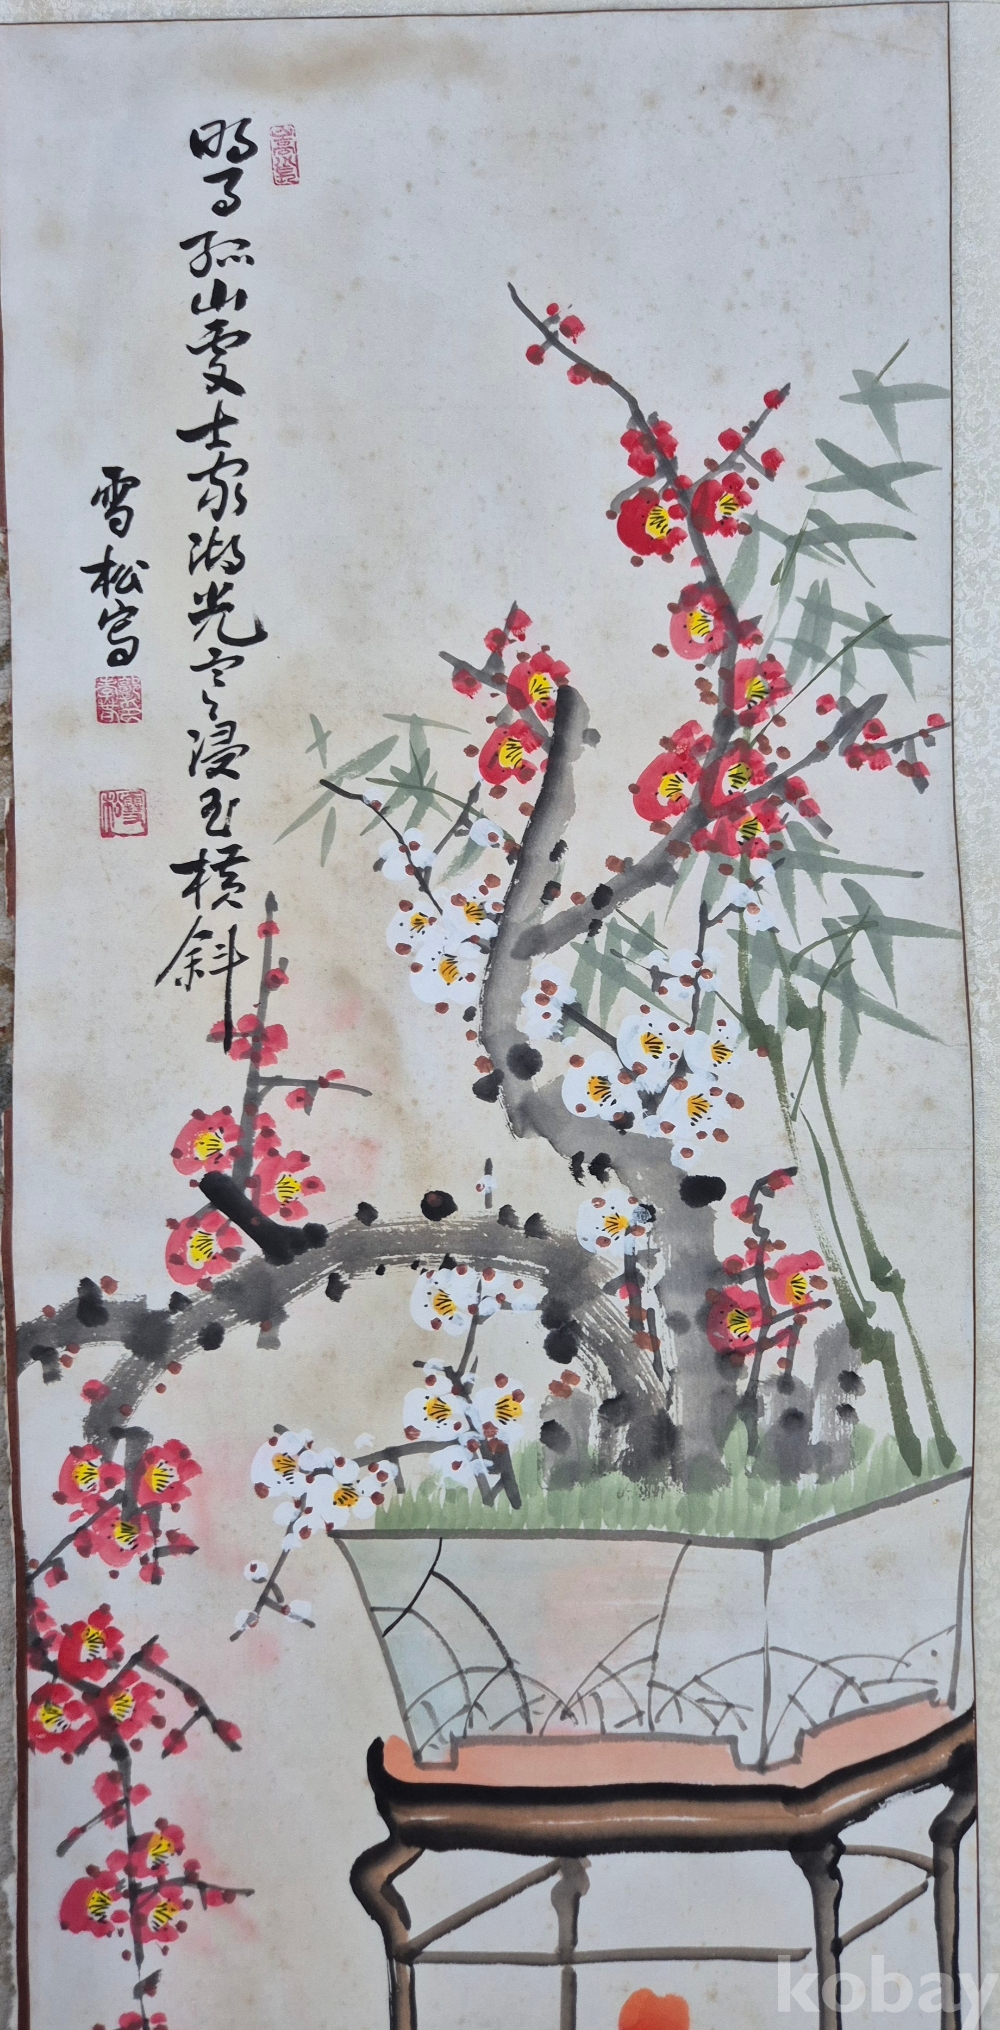 明月孤山處士家湖光寒浸玉橫斜
雪松寫
雪松
kobay